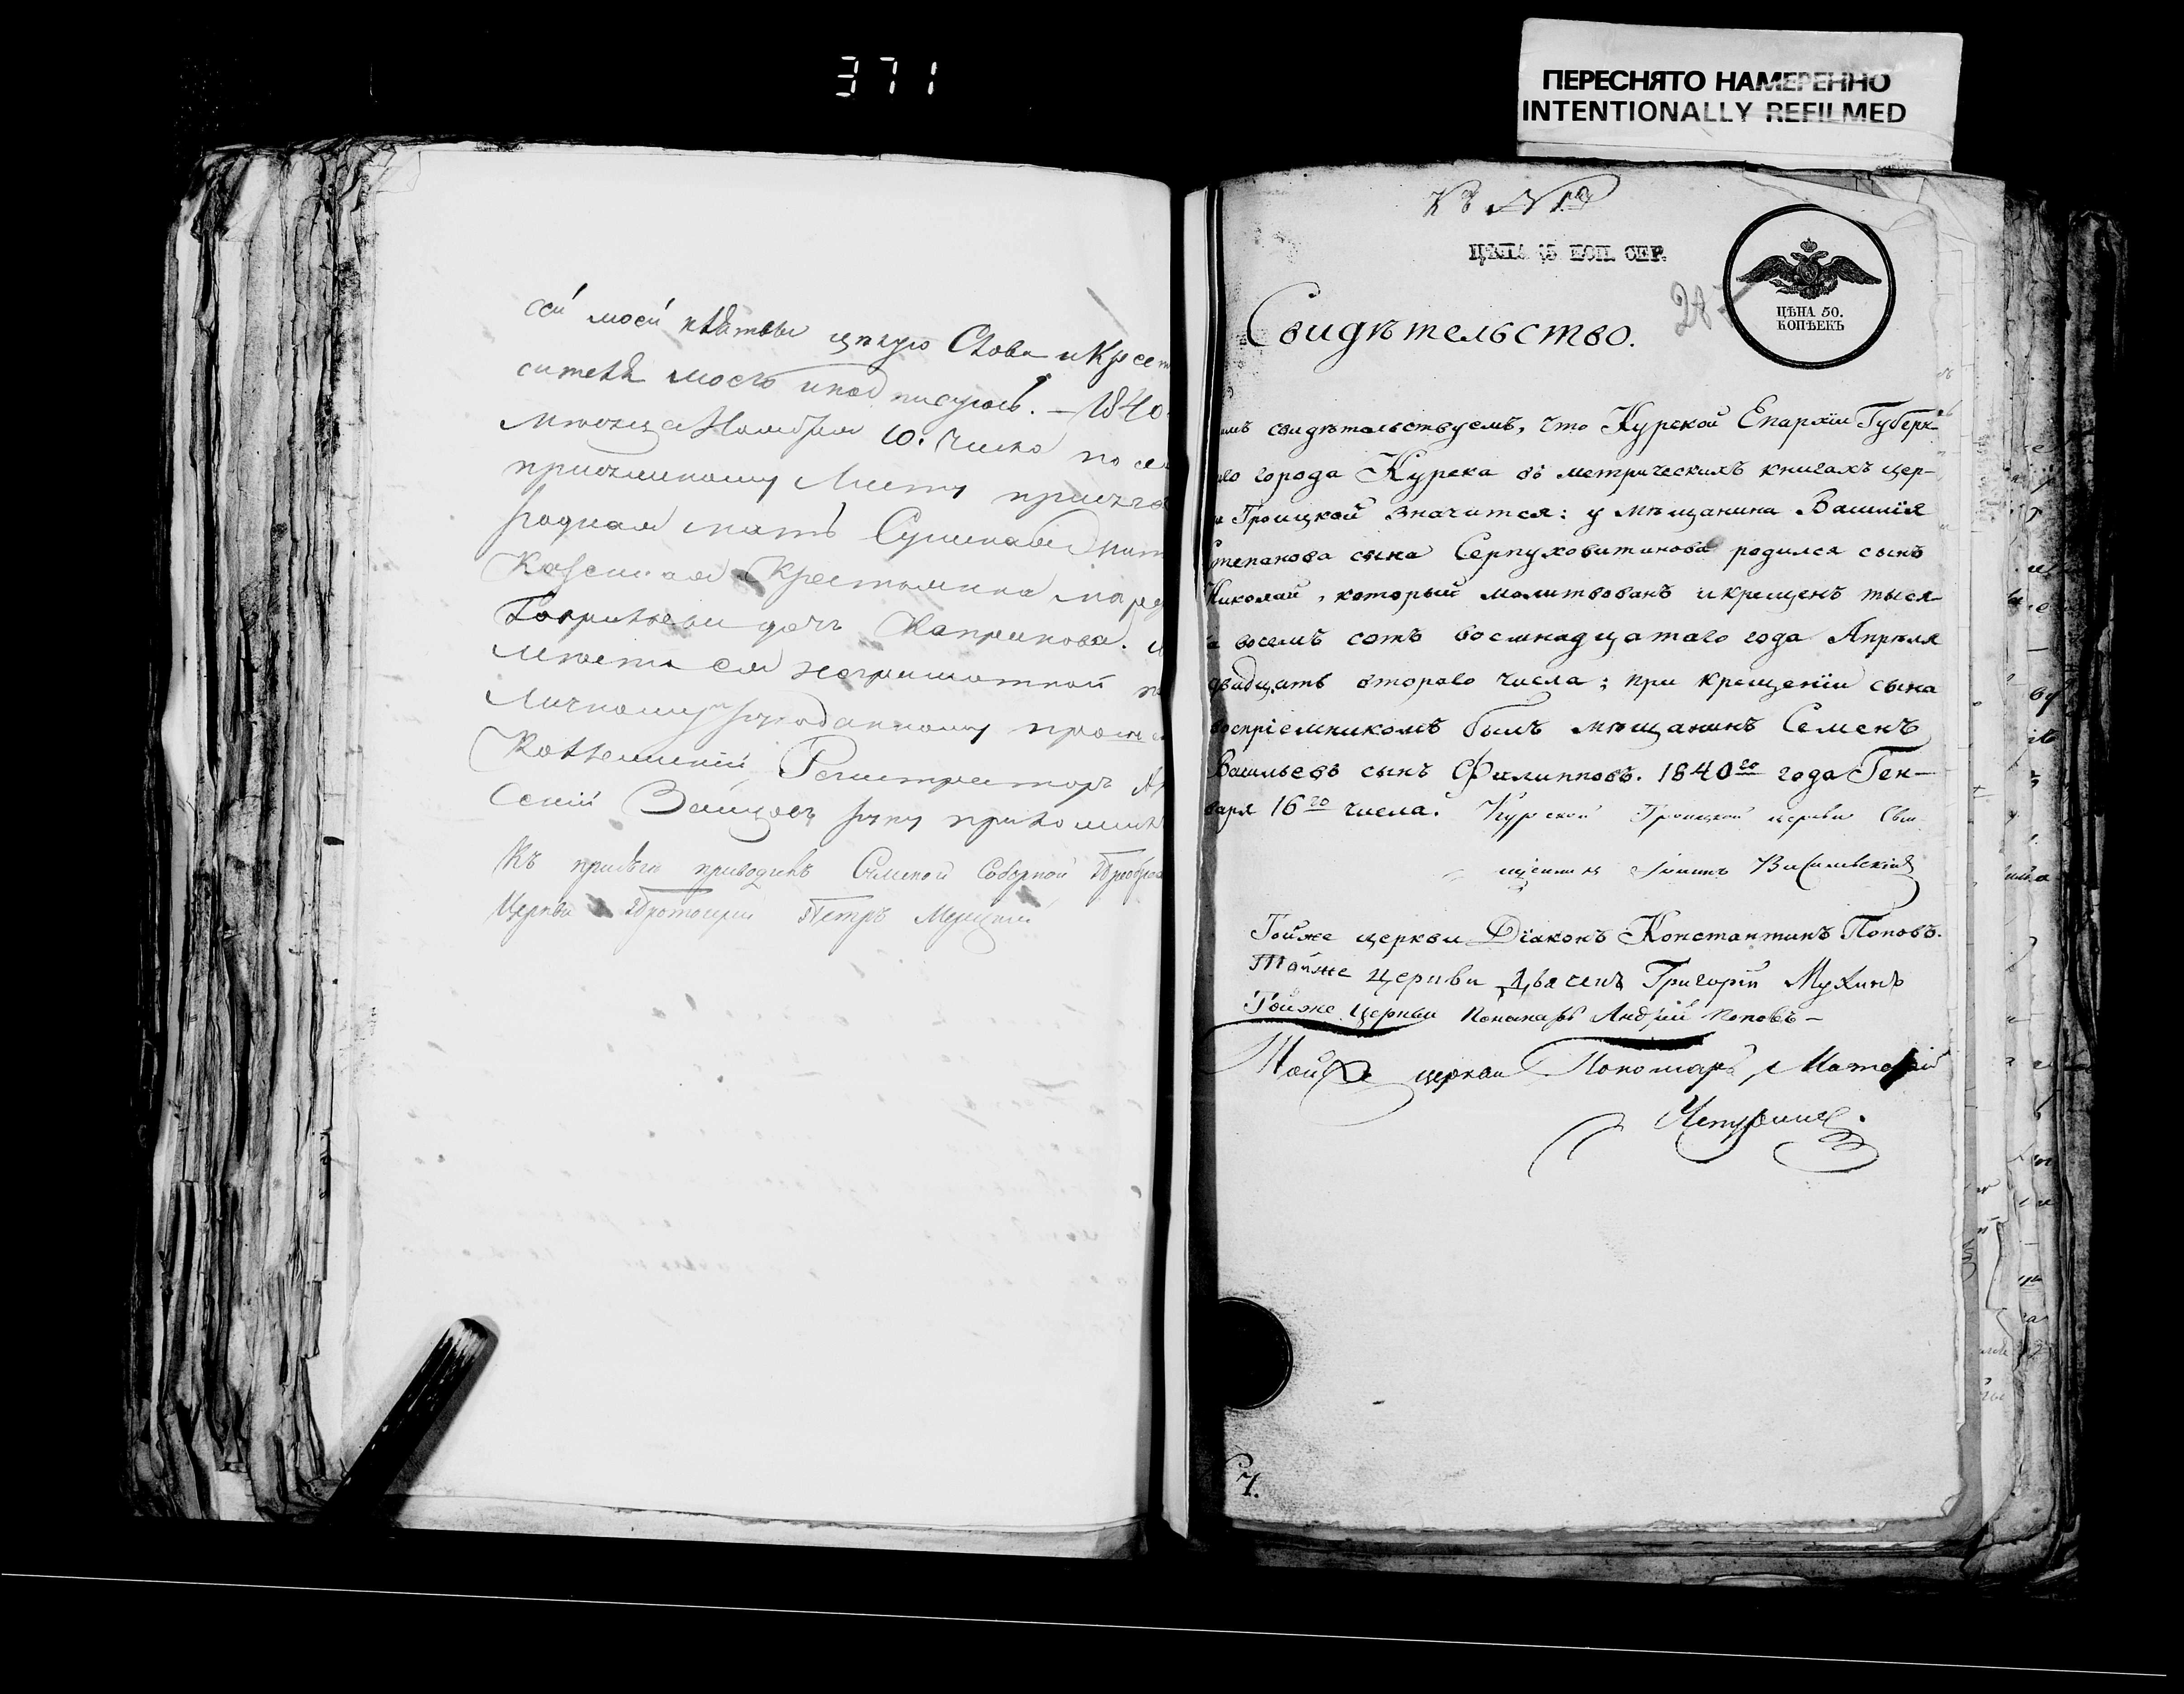 371
ПЕРЕСНЯТО НАМЕРЕННО
INTENTIONALLY REFILMED
сей моей клятвы цѣлую Слова и Крест
сителя моего и подписуюсь. — 1840
Мѣсяца Ноября 10. числа по се
присяжному Листу
родная мать
Казенная Крестьянка
Гаврилова дочь
неграмотной
Личному рукоданному прош
Коллежский Регистраторъ
Зайцовъ руку приложилъ
Къ присягѣ приводилъ Сумской Соборной Преображ
Церкви Протоиерей Петръ
Къ № 1му
ЦѢНА 15 КОП. СЕР.
ЦѢНА 50.
КОПѢЕКЪ
Свидѣтельство.
емъ свидѣтельствуемъ, что Курской Епархіи Губерн
го города Курска въ метрическихъ книгахъ цер-
и Троицкой значится: у мѣщанина Василія
Степанова сына Серпуховитинова родился сынъ
Николай, который молитвованъ и крещенъ тыся
а восемъ сотъ восмнадцатаго года Апрѣля
двадцать втораго числа; при крещеніи сына
воспріемникомъ былъ мѣщанинъ Семенъ
Васильевъ сынъ Филипповъ. 1840го года Ген-
варя 16го числа. Курской Троицкой церкви Свя
щенникъ Іоаннъ Васильевскій
Тойже церкви Діаконъ Константинъ Поповъ.
Тойже Церкви Дьячекъ Григорій Мухинъ
Тойже Церкви Пономарь Андрей Поповъ —
Тойже церкви Пономарь Матфей
7.